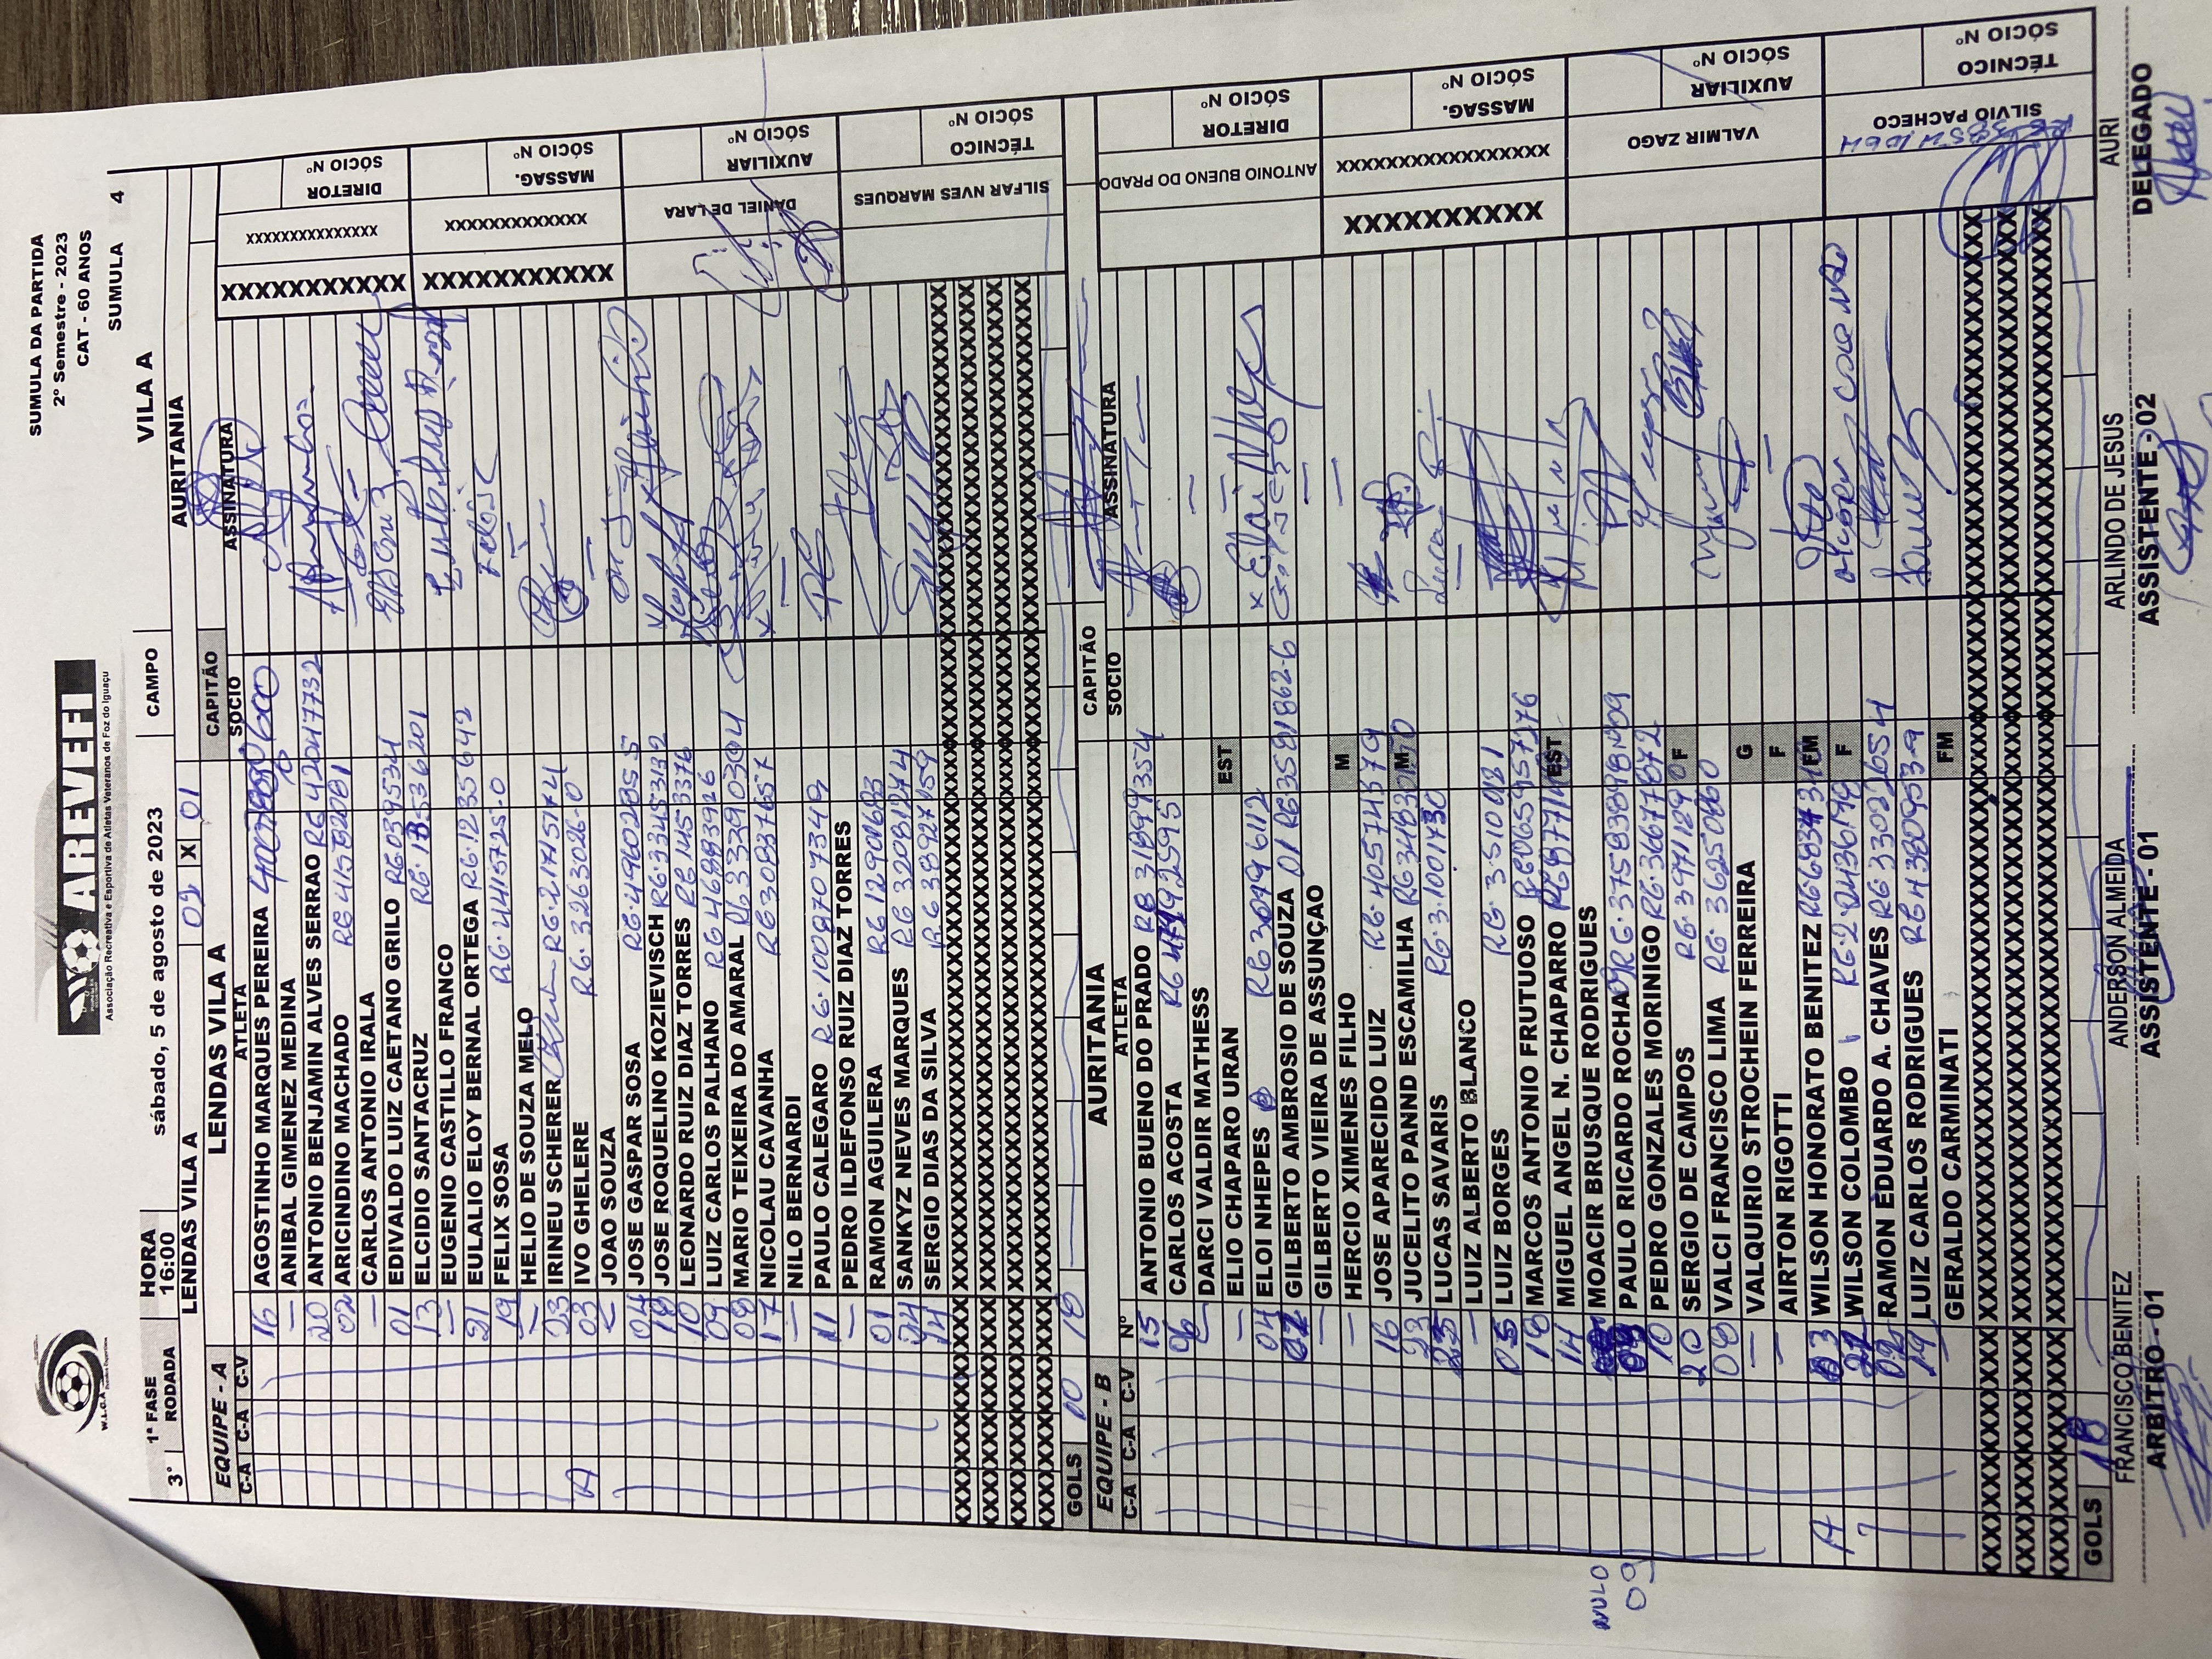 SUMULA DA PARTIDA
2º Semestre - 2023
CAT - 60 ANOS
SUMULA 4
W.L.C.A
AREVEFI
Associação Recreativa e Esportiva de Atletas Veteranos de Foz do Iguaçu
1ª FASE HORA sábado, 5 de agosto de 2023 CAMPO VILA A
3ª RODADA 16:00
LENDAS VILA A 02 X 01 AURITANIA
EQUIPE - A LENDAS VILA A CAPITÃO
C-A C-A C-V Nº ATLETA SOCIO ASSINATURA
16 AGOSTINHO MARQUES PEREIRA
— ANIBAL GIMENEZ MEDINA
20 ANTONIO BENJAMIN ALVES SERRAO RG 42047732
02 ARICINDINO MACHADO RG 41582081
— CARLOS ANTONIO IRALA
01 EDIVALDO LUIZ CAETANO GRILO RG 03959534
13 ELCIDIO SANTACRUZ
— EUGENIO CASTILLO FRANCO
21 EULALIO ELOY BERNAL ORTEGA RG.1235642
19 FELIX SOSA RG.4415725-0
— HELIO DE SOUZA MELO
23 IRINEU SCHERER RG.21715174
A 03 IVO GHELERE RG.3263026-0
— JOAO SOUZA
04 JOSE GASPAR SOSA RG.49602855
18 JOSE ROQUELINO KOZIEVISCH RG.33453132
10 LEONARDO RUIZ DIAZ TORRES RG 14533376
09 LUIZ CARLOS PALHANO RG 46883926
08 MARIO TEIXEIRA DO AMARAL RG 33390304
17 NICOLAU CAVANHA RG 30837657
— NILO BERNARDI
11 PAULO CALEGARO RG.1008707349
— PEDRO ILDEFONSO RUIZ DIAZ TORRES
01 RAMON AGUILERA RG 12901683
24 SANKYZ NEVES MARQUES RG 32081274
14 SERGIO DIAS DA SILVA RG 38927059
GOLS 10 18
XXXXXXXXXXX XXXXXXXXXXXXXXX DIRETOR SÓCIO Nº
XXXXXXXXXXX XXXXXXXXXXXXX MASSAG. SÓCIO Nº
DANIEL DE LARA AUXILIAR SÓCIO Nº
SILFAR NVES MARQUES TÉCNICO SÓCIO Nº
EQUIPE - B AURITANIA CAPITÃO
C-A C-A C-V Nº ATLETA SOCIO ASSINATURA
15 ANTONIO BUENO DO PRADO RG 31899354
06 CARLOS ACOSTA
— DARCI VALDIR MATHESS
— ELIO CHAPARO URAN EST
04 ELOI NHEPES RG 30796112
GILBERTO AMBROSIO DE SOUZA 01 RG 3581862-6
— GILBERTO VIEIRA DE ASSUNÇAO
— HERCIO XIMENES FILHO M
16 JOSE APARECIDO LUIZ RG.40574379
23 JUCELITO PANND ESCAMILHA M
LUCAS SAVARIS RG.3.1001730
— LUIZ ALBERTO BLANCO
05 LUIZ BORGES RG.3.510021
18 MARCOS ANTONIO FRUTUOSO
14 MIGUEL ANGEL N. CHAPARRO EST
MOACIR BRUSQUE RODRIGUES
NULO 09 PAULO RICARDO ROCHA
10 PEDRO GONZALES MORINIGO
20 SERGIO DE CAMPOS RG.3971129 F
08 VALCI FRANCISCO LIMA RG.3625060
— VALQUIRIO STROCHEIN FERREIRA G
— AIRTON RIGOTTI F
A 03 WILSON HONORATO BENITEZ FM
WILSON COLOMBO F
RAMON EDUARDO A. CHAVES RG 33022654
19 LUIZ CARLOS RODRIGUES RG 43809539
GERALDO CARMINATI FM
GOLS 18
ANTONIO BUENO DO PRADO DIRETOR SÓCIO Nº
XXXXXXXXXX XXXXXXXXXXXXXXXXX MASSAG. SÓCIO Nº
VALMIR ZAGO AUXILIAR SÓCIO Nº
SILVIO PACHECO TÉCNICO SÓCIO Nº
FRANCISCO BENITEZ ANDERSON ALMEIDA ARLINDO DE JESUS AURI
ARBITRO - 01 ASSISTENTE - 01 ASSISTENTE - 02 DELEGADO